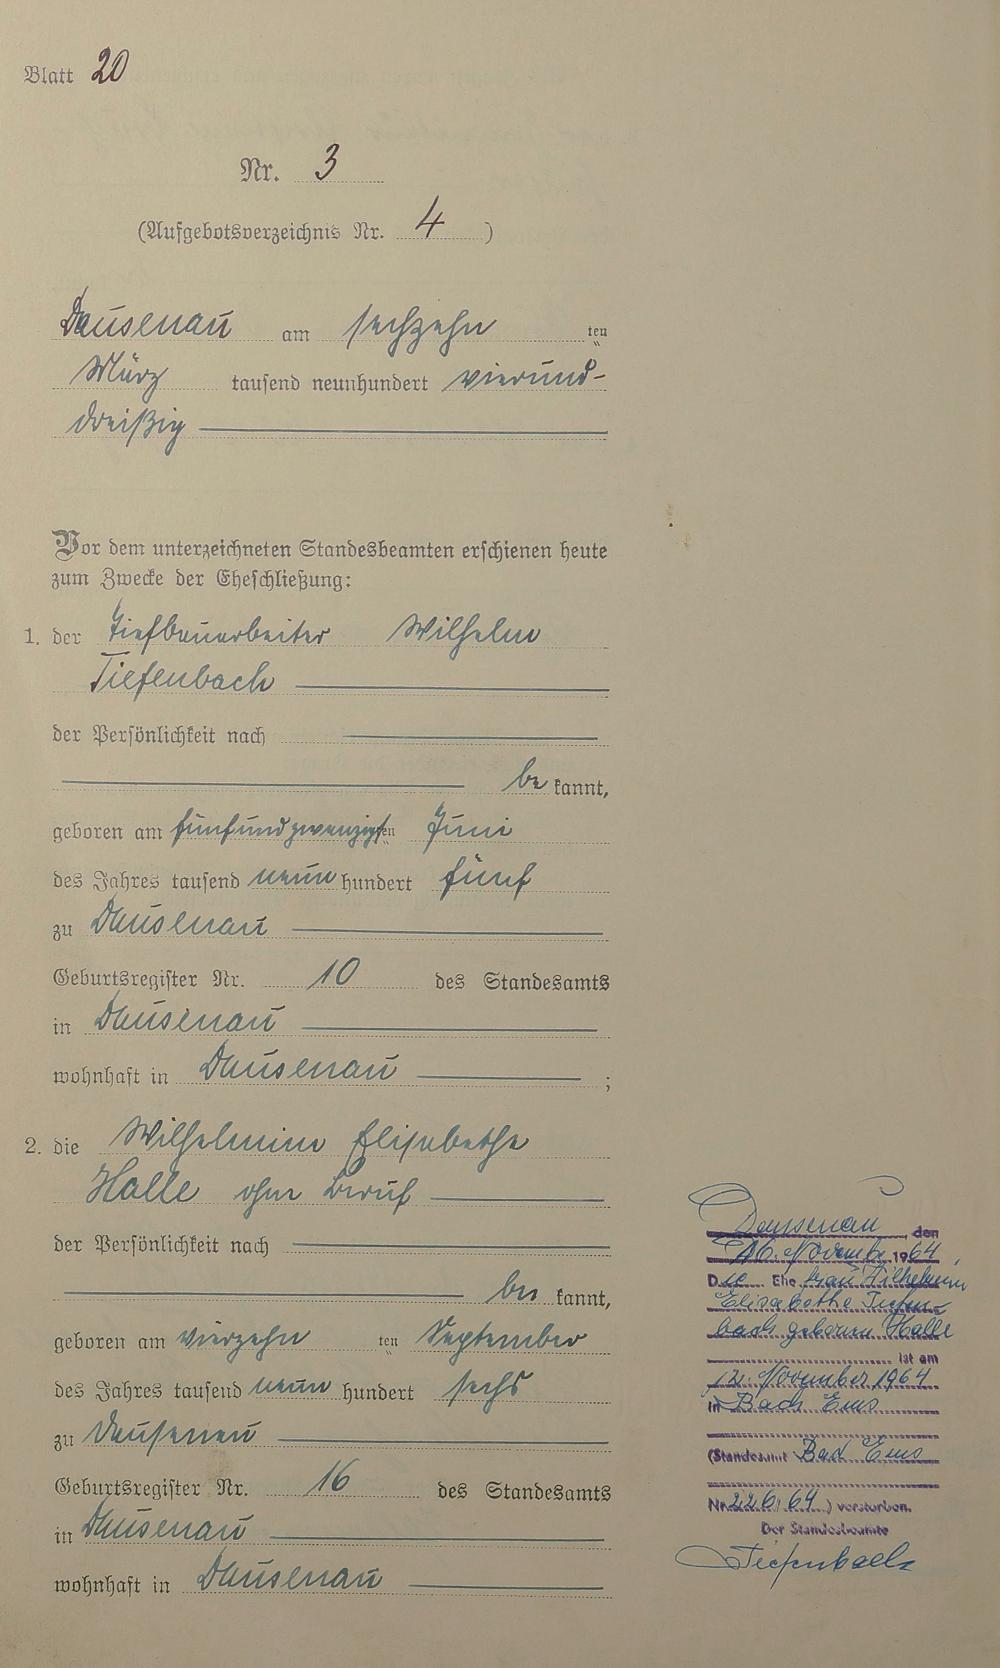 Blatt 20
Nr. 3
(Aufgebotsverzeichnis Nr. 4 )
Dausenau am sechzehn ten
März tausend neunhundert vierund-
dreißig
Vor dem unterzeichneten Standesbeamten erschienen heute
zum Zwecke der Eheschließung:
1. der Tiefbauarbeiter Wilhelm
Tiefenbach
der Persönlichkeit nach
be kannt,
geboren am fünfundzwanzigsten Juni
des Jahres tausend neun hundert fünf
zu Dausenau
Geburtsregister Nr. 10 des Standesamts
in Dausenau
wohnhaft in Dausenau ;
2. die Wilhelmine Elisabethe
Halle ohne Beruf
der Persönlichkeit nach
be kannt,
geboren am vierzehn ten September
des Jahres tausend neun hundert sechs
zu Dausenau
Geburtsregister Nr. 16 des Standesamts
in Dausenau
wohnhaft in Dausenau
Dausenau, den
16. November 1964.
Die Ehefrau Wilhelmine
Elisabethe Tiefen-
bach geborene Halle
ist am
12. November 1964
in Bad Ems
(Standesamt Bad Ems
Nr. 226/64) verstorben.
Der Standesbeamte
Tiefenbach